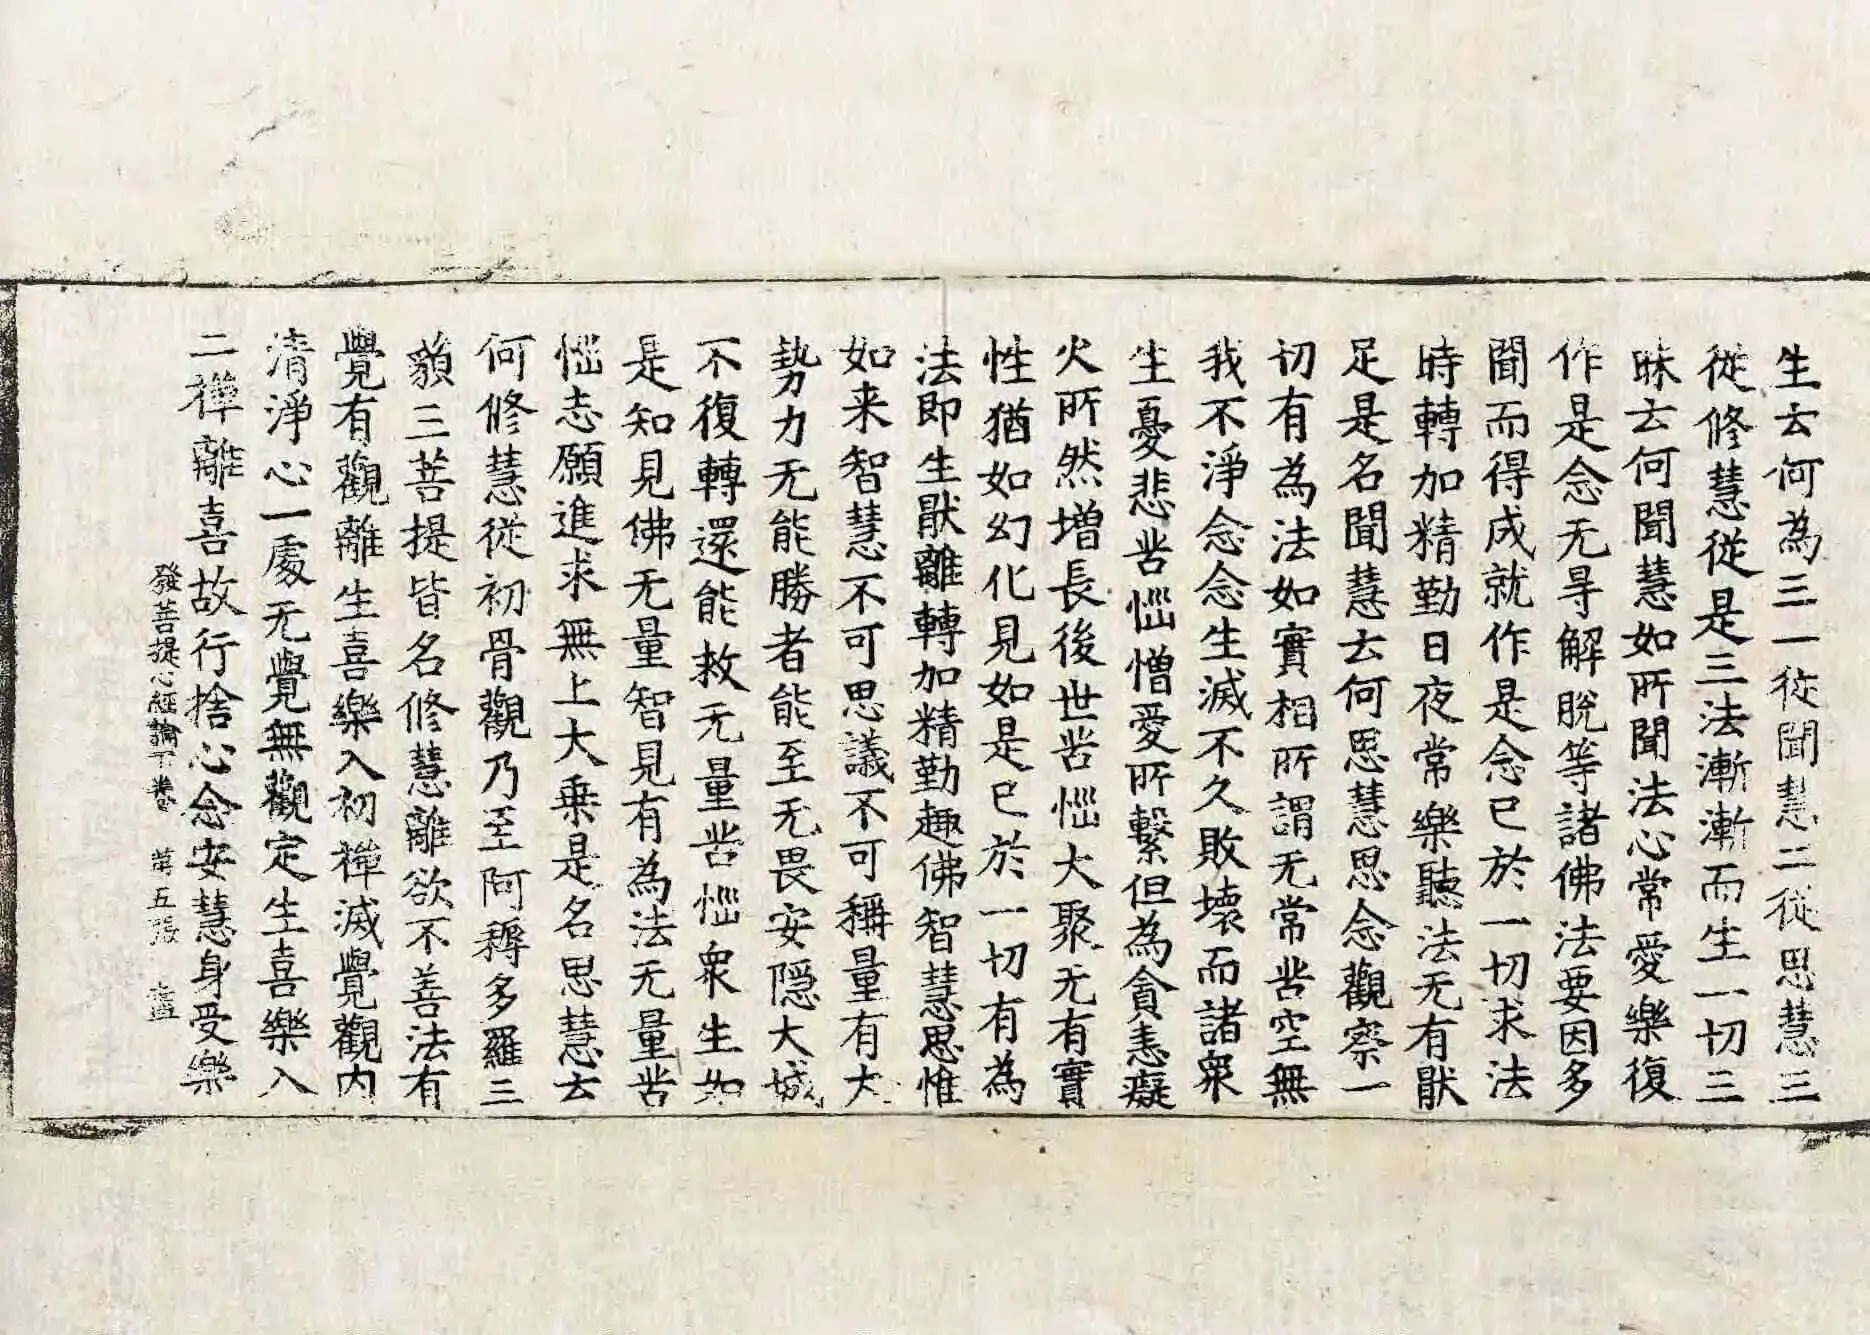 生云何為三一從聞慧二從思慧三
從修慧從是三法漸漸而生一切三
昧云何聞慧如所聞法心常愛樂復
作是念无㝵解脫等諸佛法要因多
聞而得成就作是念已於一切求法
時轉加精勤日夜常樂聽法无有猒
足是名聞慧云何思慧思念觀察一
切有為法如實相所謂无常苦空無
我不淨念念生滅不久敗壞而諸眾
生憂悲苦惱憎愛所繫但為貪恚癡
火所然增長後世苦惱大聚无有實
性猶如幻化見如是已於一切有為
法即生猒離轉加精勤趣佛智慧思惟
如来智慧不可思議不可稱量有大
勢力无能勝者能至无畏安隱大城
不復轉還能救无量苦惱眾生如
是知見佛无量智見有為法无量苦
惱志願進求無上大乘是名思慧云
何修慧從初骨觀乃至阿耨多羅三
藐三菩提皆名修慧離欲不善法有
覺有觀離生喜樂入初禪滅覺觀內
清淨心一處无覺無觀定生喜樂入
二禪離喜故行捨心念安慧身受樂
發菩提心經論下卷 第五張 盡